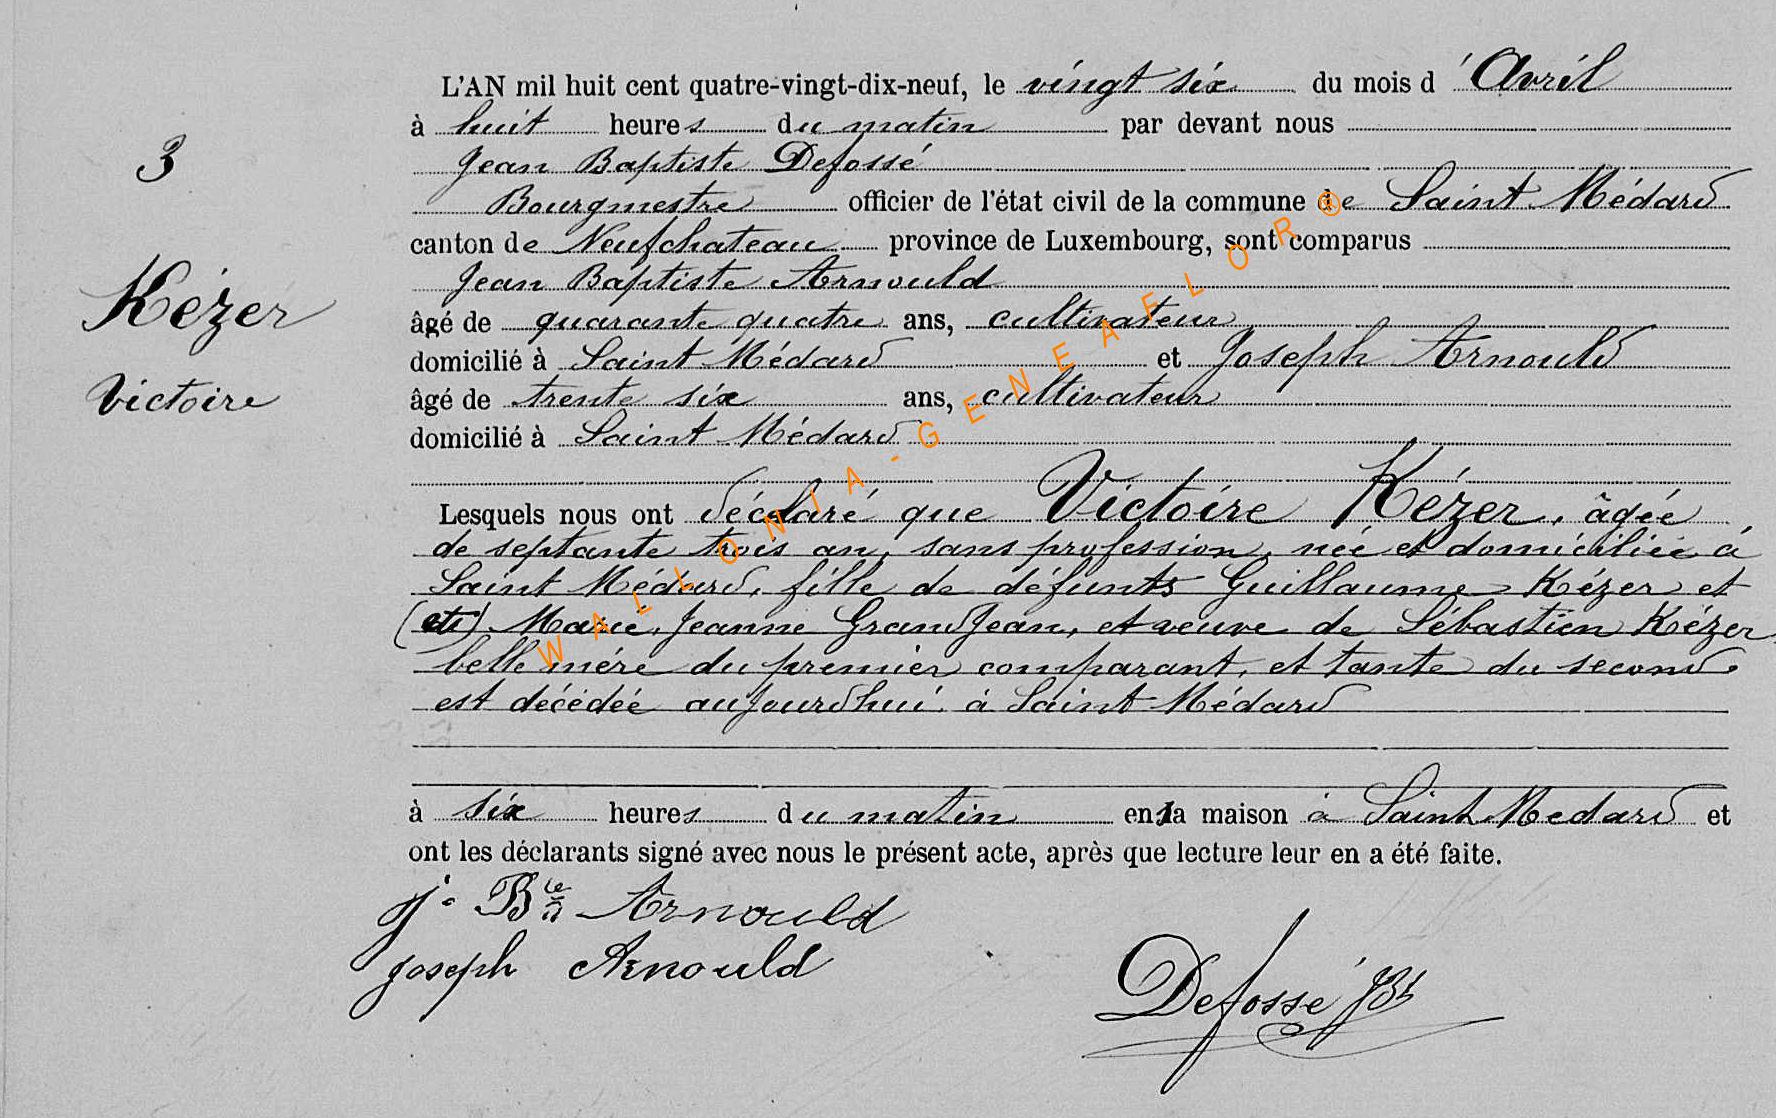 L'AN mil huit cent quatre-vingt-dix-neuf, le vingt six du mois d'Avril
à huit heures du matin par devant nous
Jean Baptiste Defossé
Bourgmestre officier de l'état civil de la commune de Saint Médard
canton de Neufchateau province de Luxembourg, sont comparus
Jean Baptiste Arnould
âgé de quarante quatre ans, cultivateur
domicilié à Saint Médard et Joseph Arnould
âgé de trente six ans, cultivateur
domicilié à Saint Médard
Lesquels nous ont déclaré que Victoire Kézer, âgée
de septante trois an, sans profession, née et domiciliée à
Saint Médard, fille de défunts Guillaume Kézer et
(et) Marie, Jeanne Grandjean, et veuve de Sébastien Kézer,
belle mère du premier comparant, et tante du second
est décédée aujourdhui à Saint Médard
à six heures du matin en sa maison à Saint Medard et
ont les déclarants signé avec nous le présent acte, après que lecture leur en a été faite.
J. Bte Arnould
Joseph Arnould
Defossé JBt
3
Kézer
Victoire
WALLONIA-GENEAFLOR®